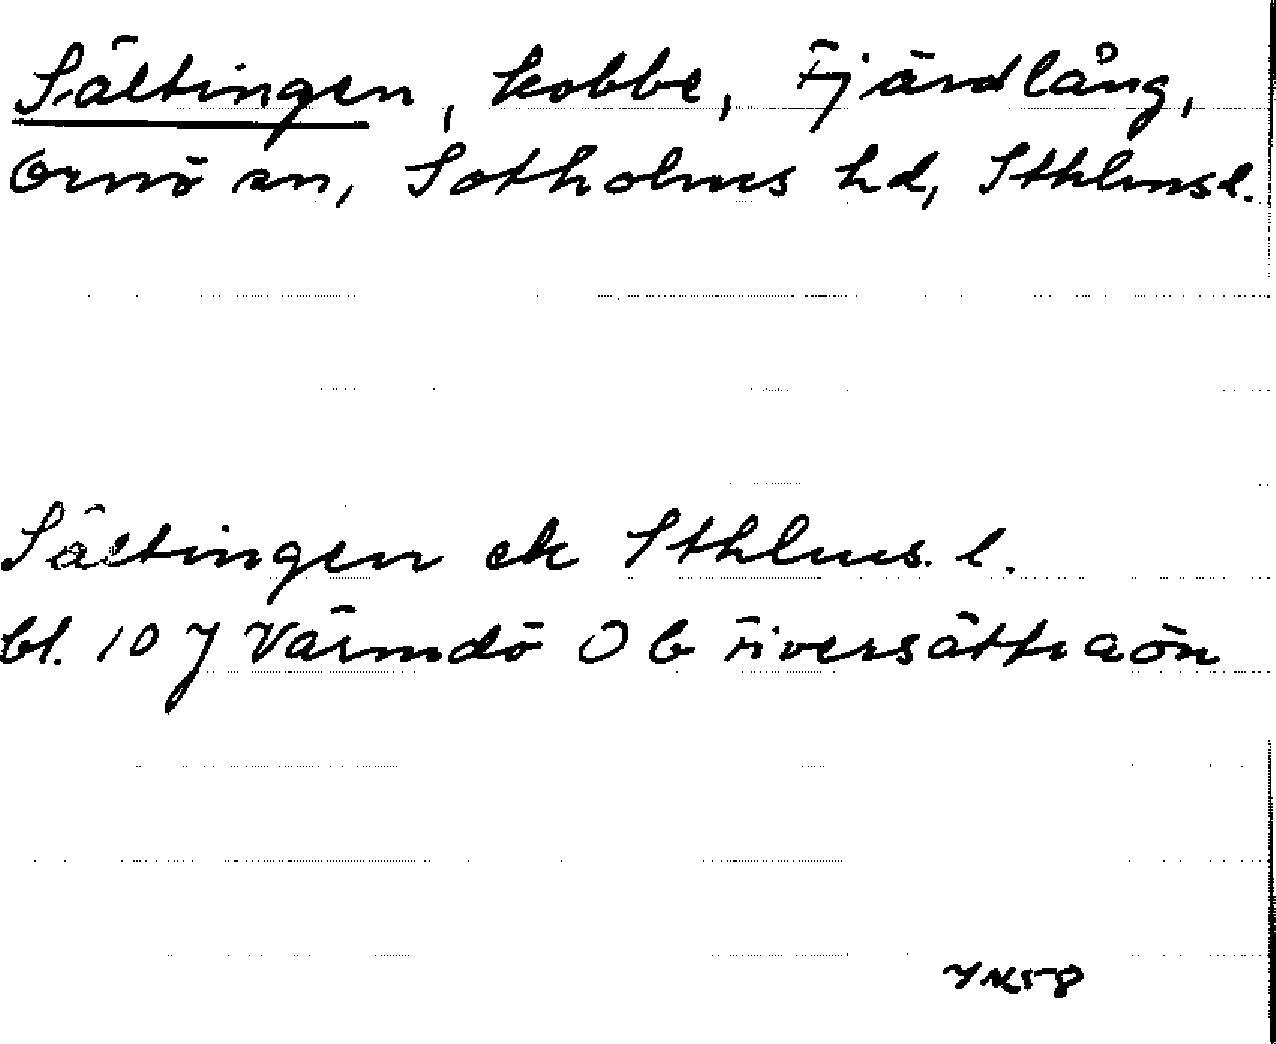 Sältingen, kobbe, Fjärdlång,
Ornö sn, Sotholms hd, Sthlms l.
Sältingen ek Sthlms. l.
bl. 10 J Värmdö O b Fiversättraön